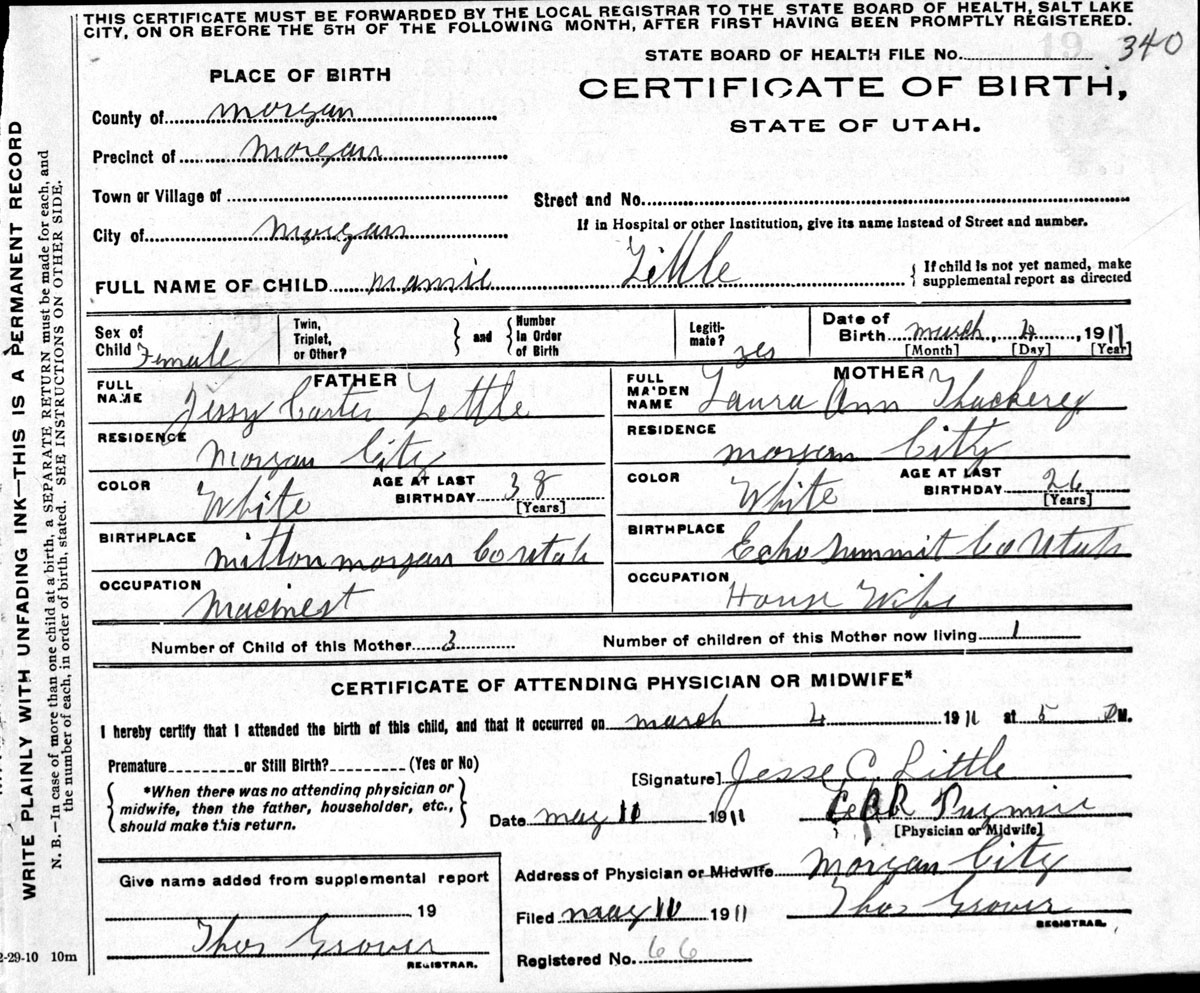 THIS CERTIFICATE MUST BE FORWARDED BY THE LOCAL REGISTRAR TO THE STATE BOARD OF HEALTH, SALT LAKE
CITY, ON OR BEFORE THE 5TH OF THE FOLLOWING MONTH, AFTER FIRST HAVING BEEN PROMPTLY REGISTERED.
STATE BOARD OF HEALTH FILE No. 340
PLACE OF BIRTH
CERTIFICATE OF BIRTH,
STATE OF UTAH.
County of Morgan
Precinct of Morgan
Town or Village of
Street and No.
City of Morgan
If in Hospital or other Institution, give its name instead of Street and number.
FULL NAME OF CHILD Mamie Little
{ If child is not yet named, make
supplemental report as directed
Sex of
Child Female
Twin,
Triplet,
or Other?
} and {
Number
in Order
of Birth
Legiti-
mate? yes
Date of
Birth March 4, 1911
[Month] [Day] [Year]
FATHER
FULL
NAME Jessy Carter Little
RESIDENCE Morgan City
COLOR White
AGE AT LAST
BIRTHDAY 38
[Years]
BIRTHPLACE Milton Morgan Co Utah
OCCUPATION Macinest
MOTHER
FULL
MAIDEN
NAME Laura Ann Thackerey
RESIDENCE Morgan City
COLOR White
AGE AT LAST
BIRTHDAY 26
[Years]
BIRTHPLACE Echo Summit Co Utah
OCCUPATION House Wife
Number of Child of this Mother 3
Number of children of this Mother now living 1
CERTIFICATE OF ATTENDING PHYSICIAN OR MIDWIFE*
I hereby certify that I attended the birth of this child, and that it occurred on March 4 1911 at 5 PM.
Premature or Still Birth? (Yes or No)
*When there was no attending physician or
midwife, then the father, householder, etc.,
should make this return.
[Signature] Jesse C. Little
Date May 10 1911
[Physician or Midwife]
Give name added from supplemental report
19
Thos Grover
REGISTRAR.
Address of Physician or Midwife Morgan City
Filed May 10 1911 Thos Grover
REGISTRAR.
Registered No. 66
2-29-10 10m
WRITE PLAINLY WITH UNFADING INK—THIS IS A PERMANENT RECORD
N. B.—In case of more than one child at a birth, a SEPARATE RETURN must be made for each, and
the number of each, in order of birth, stated. SEE INSTRUCTIONS ON OTHER SIDE.